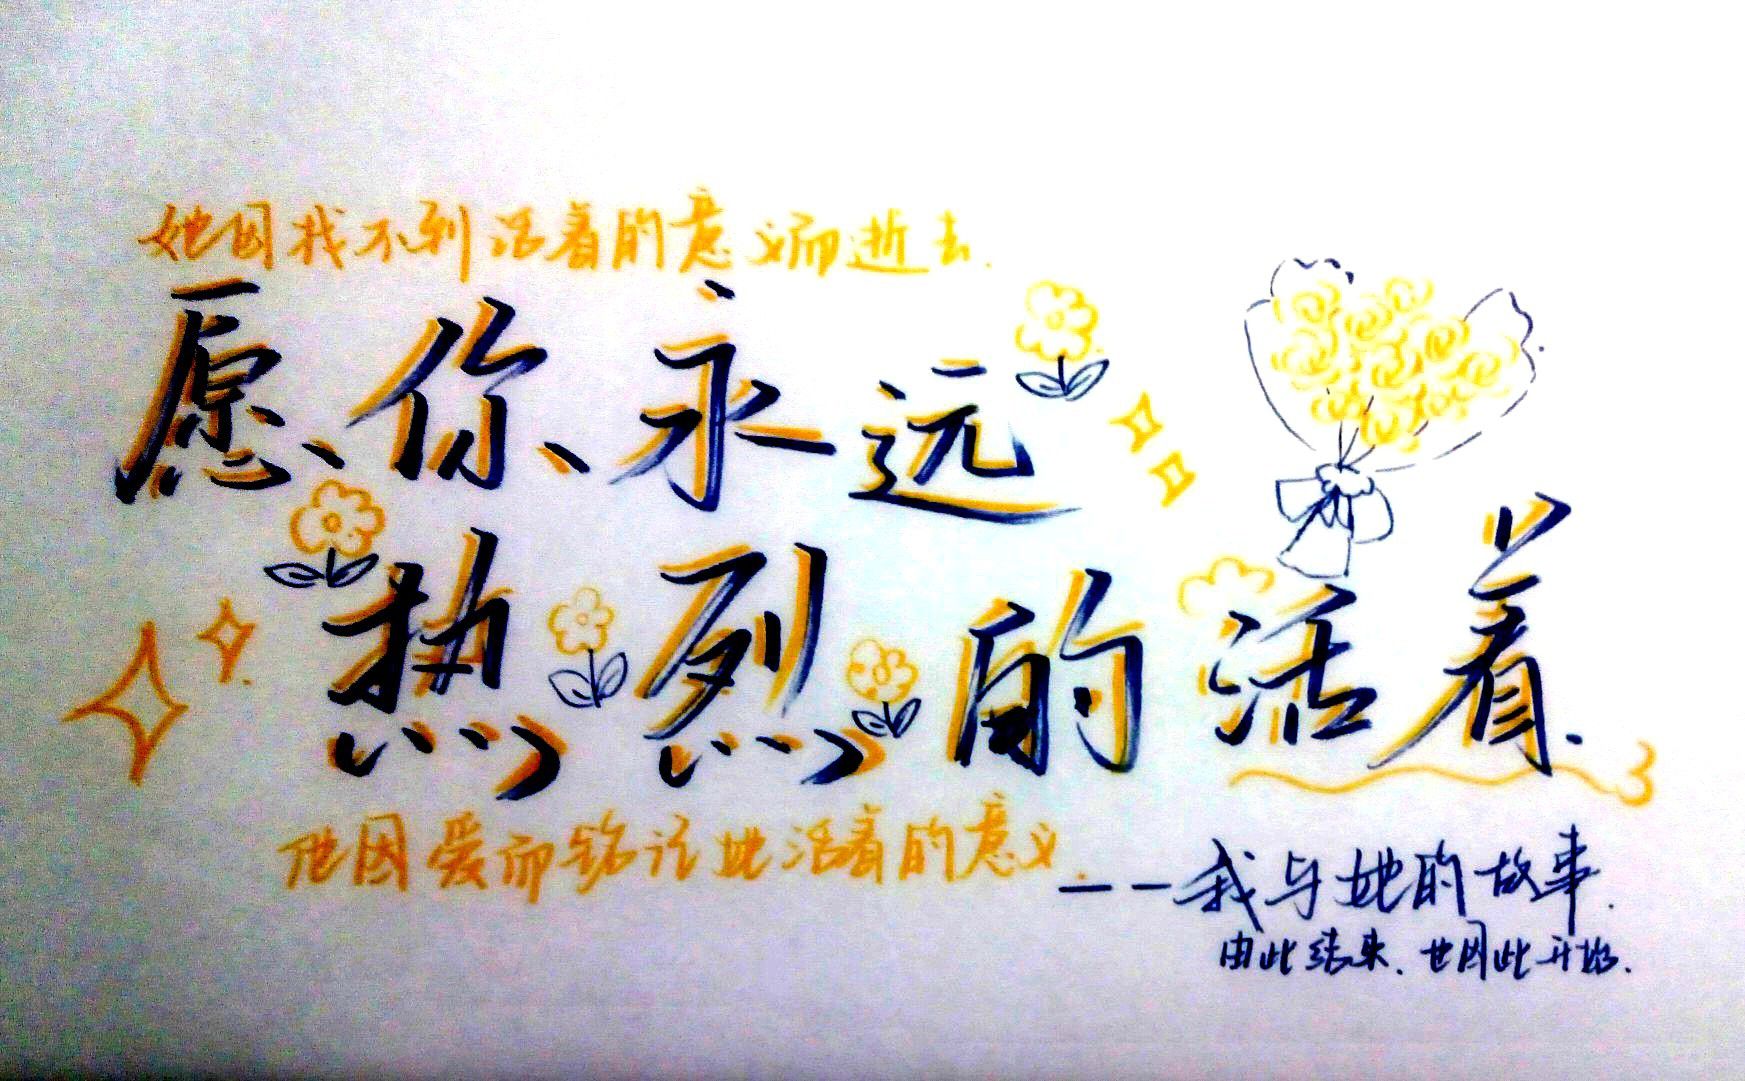 她因找不到活着的意义而逝去.
愿你永远
热烈的活着.
他因爱而铭记她活着的意义.
——我与她的故事.
由此结束.也因此开始.